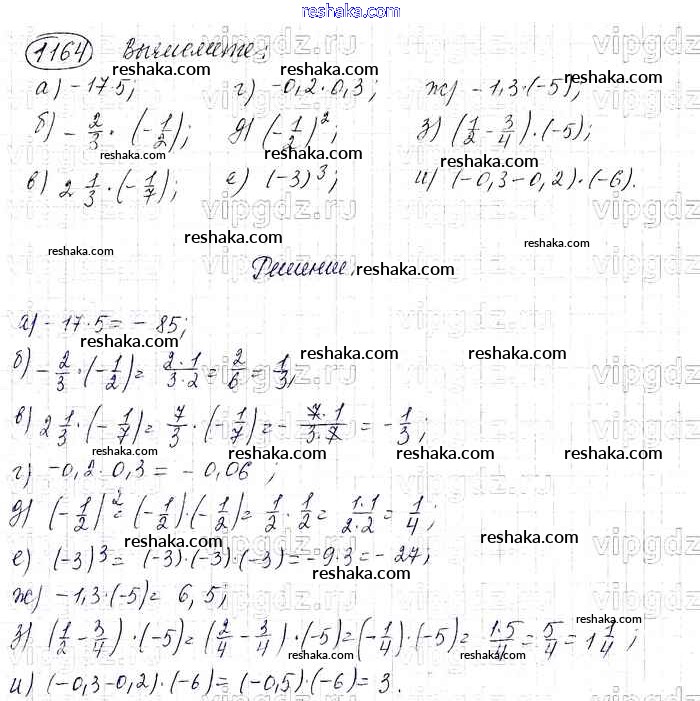 reshaka.com
1164 Вычислите:
а) -17·5; г) -0,2·0,3; ж) -1,3·(-5);
б) -2/3·(-1/2); д) (-1/2)²; з) (1/2-3/4)·(-5);
в) 2 1/3·(-1/7); е) (-3)³; и) (-0,3-0,2)·(-6).
Решение,
а) -17·5= -85;
б) -2/3·(-1/2)= 2·1/3·2= 2/6= 1/3;
в) 2 1/3·(-1/7)= 7/3·(-1/7)= -7·1/3·7= -1/3;
г) -0,2·0,3= -0,06;
д) (-1/2)²= (-1/2)·(-1/2)= 1/2·1/2= 1·1/2·2= 1/4;
е) (-3)³= (-3)·(-3)·(-3)= -9·3= -27;
ж) -1,3·(-5)= 6,5;
з) (1/2-3/4)·(-5)= (2/4-3/4)·(-5)= (-1/4)·(-5)= 1·5/4= 5/4= 1 1/4;
и) (-0,3-0,2)·(-6)= (-0,5)·(-6)= 3.